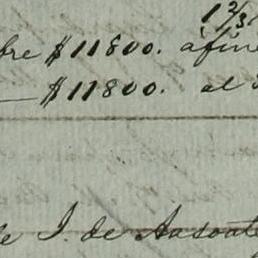 1 2/3
bre $11800. afine
— $11800. al
e J. de Aasoate